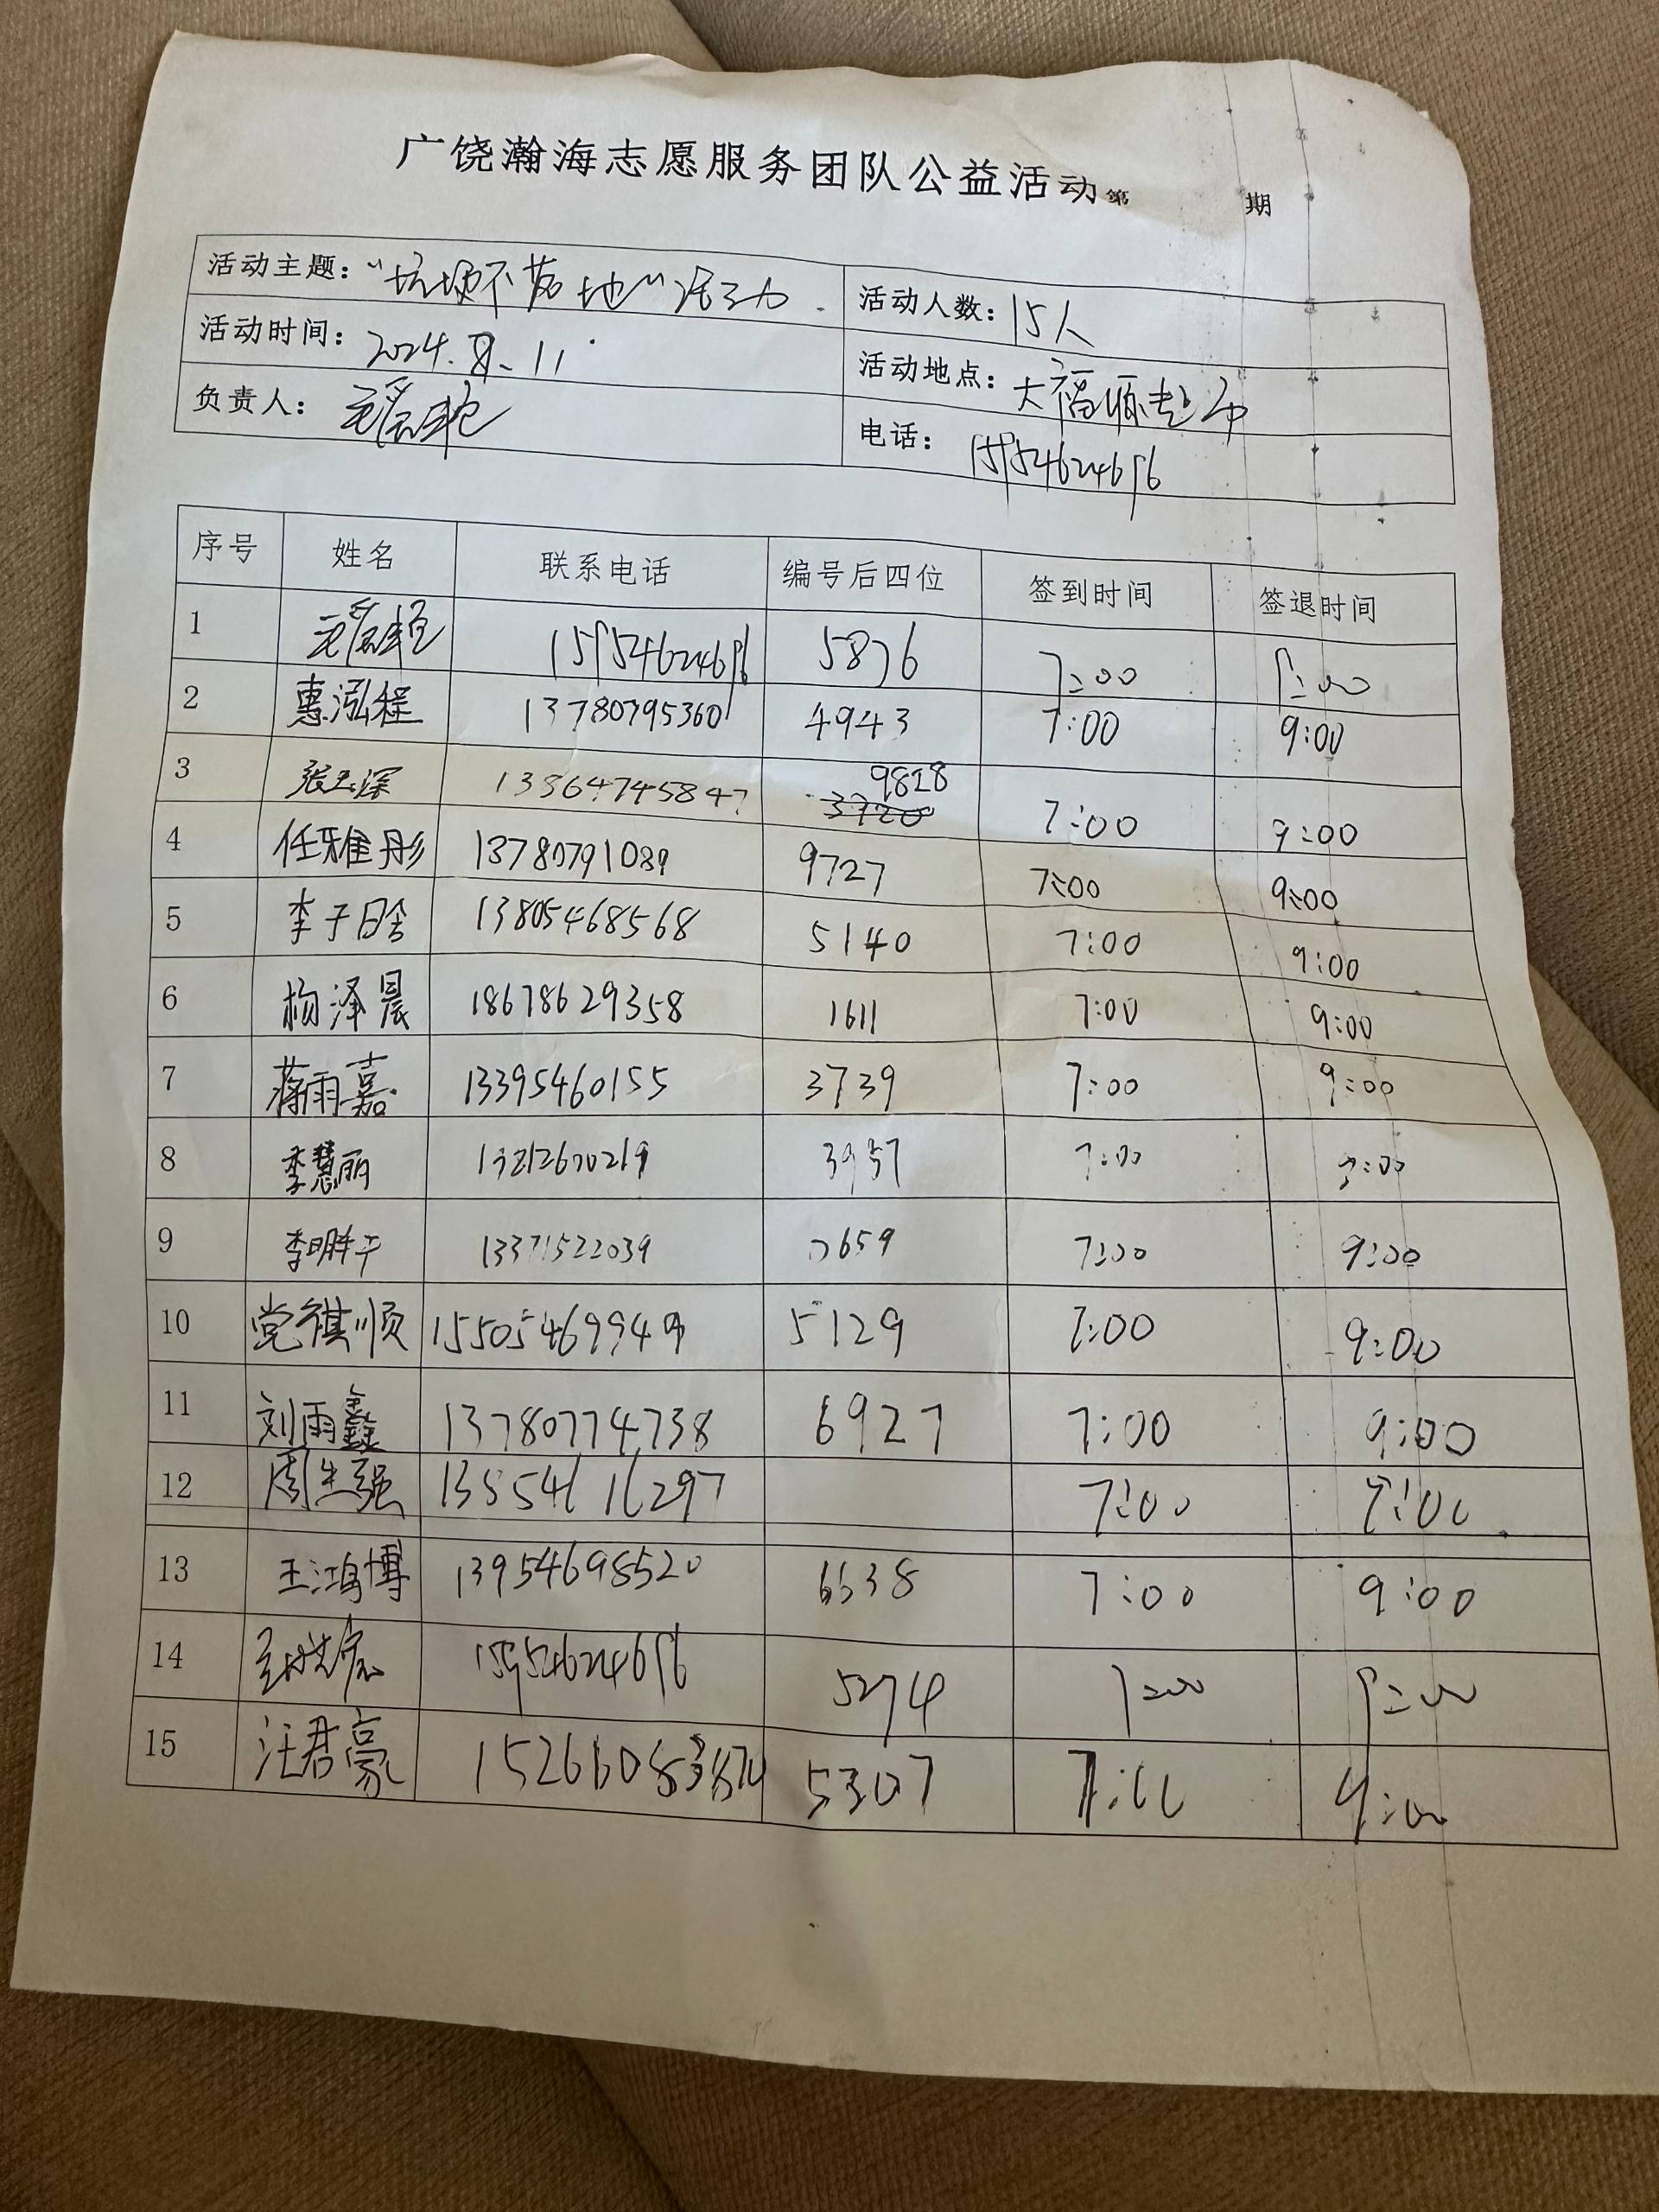 广饶瀚海志愿服务团队公益活动第 期
活动主题：“垃圾不落地”活动. 活动人数：15人
活动时间：2024.8.11 活动地点：大福源超市
负责人： 电话：15954624696
序号 姓名 联系电话 编号后四位 签到时间 签退时间
1 15954624696 5876 7:00 9:00
2 惠泓程 13780795360 4943 7:00 9:00
3 张玉深 13364745847 9828 7:00 9:00
4 任雅彤 13780791089 9727 7:00 9:00
5 李子晗 13805468568 5140 7:00 9:00
6 杨泽晨 18678629358 1611 7:00 9:00
7 蒋雨嘉 13395460155 3739 7:00 9:00
8 李慧丽 3957 7:00 9:00
9 李明轩 13371522039 7:00 9:00
10 党祺顺 15505469949 5129 7:00 9:00
11 刘雨鑫 13780774738 6927 7:00 9:00
12 周生强 7:00 9:00
13 王鸿博 13954698520 6638 7:00 9:00
14 15954624696 5274 7:00 9:00
15 汪君豪 5307 7:00 9:00